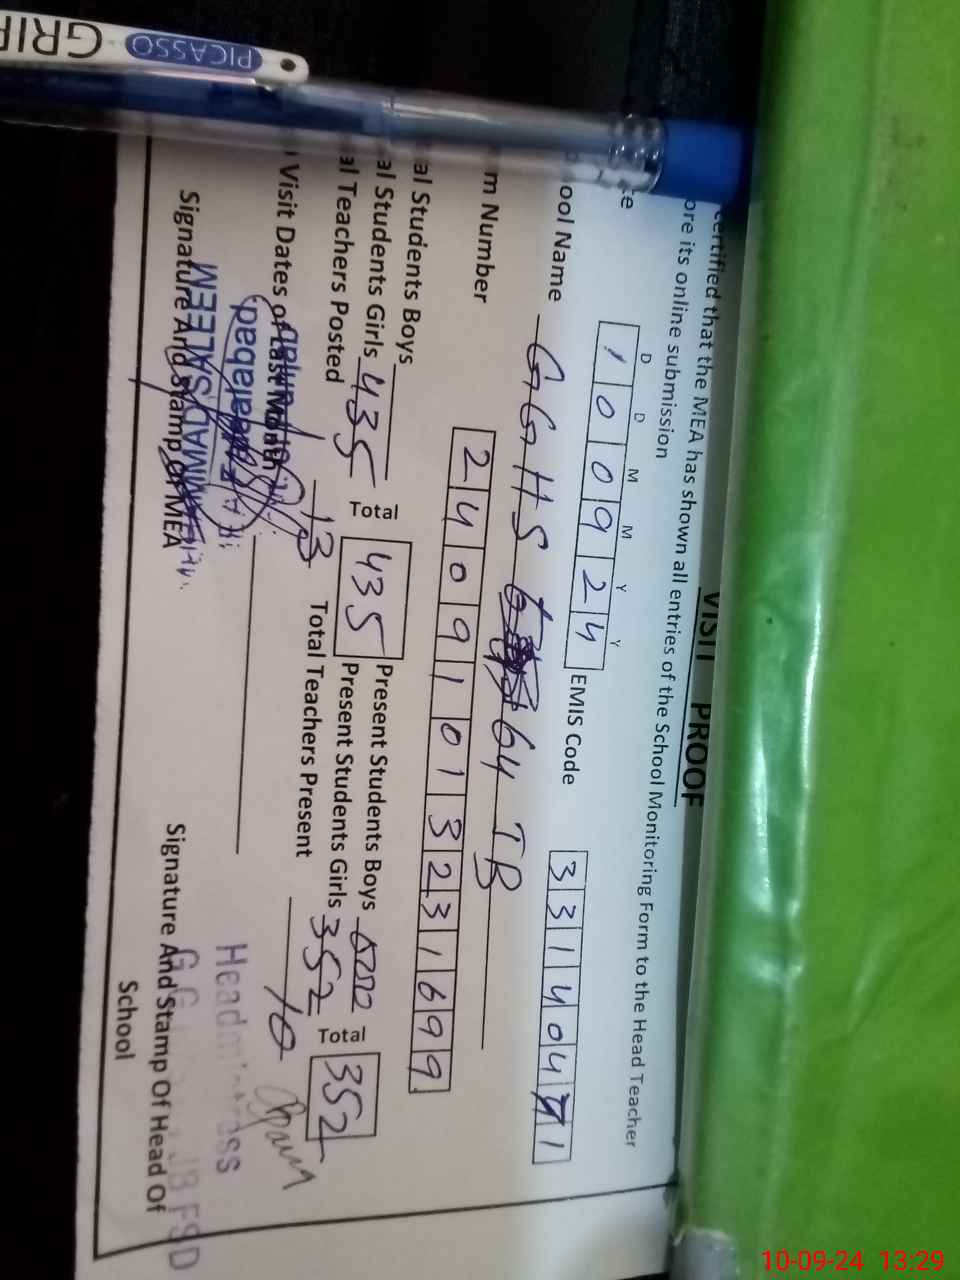 PICASSO GRIP
VISIT PROOF
certified that the MEA has shown all entries of the School Monitoring Form to the Head Teacher
ore its online submission
D D M M Y Y
te 1 0 0 9 2 4 EMIS Code 3 3 1 4 0 4 1
ool Name GGHS 64 JB
m Number 2 4 0 9 1 0 1 3 2 3 1 6 9 9
al Students Boys Total 435 Present Students Boys Total 352
al Students Girls 435 Present Students Girls 352
al Teachers Posted 13 Total Teachers Present 10
Visit Dates of Last Month
MUHAMMAD SALEEM
Faisalabad
Headmistress
JB FSD
Signature And Stamp Of MEA
Signature And Stamp Of Head Of School
10-09-24 13:29